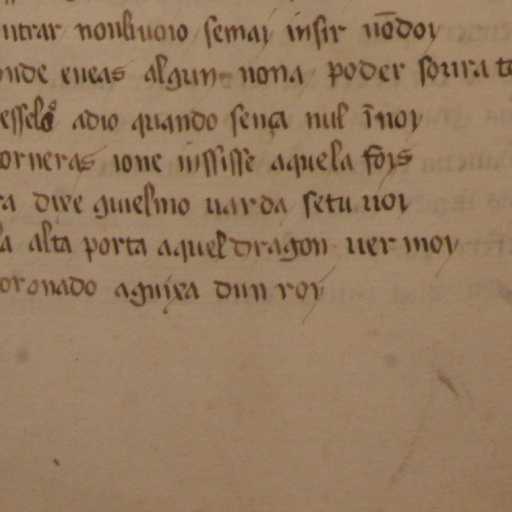 ntrar nonli uoio semai insir uōdoi
onde eueas algun nona poder soura te
esselo adio quando sença nul īnoi
orneras ioue inssisse aquela fois
ra dixe guielmo uarda setu uoi
la alta porta aquel dragon uermoi
oronado aguixa dun roi